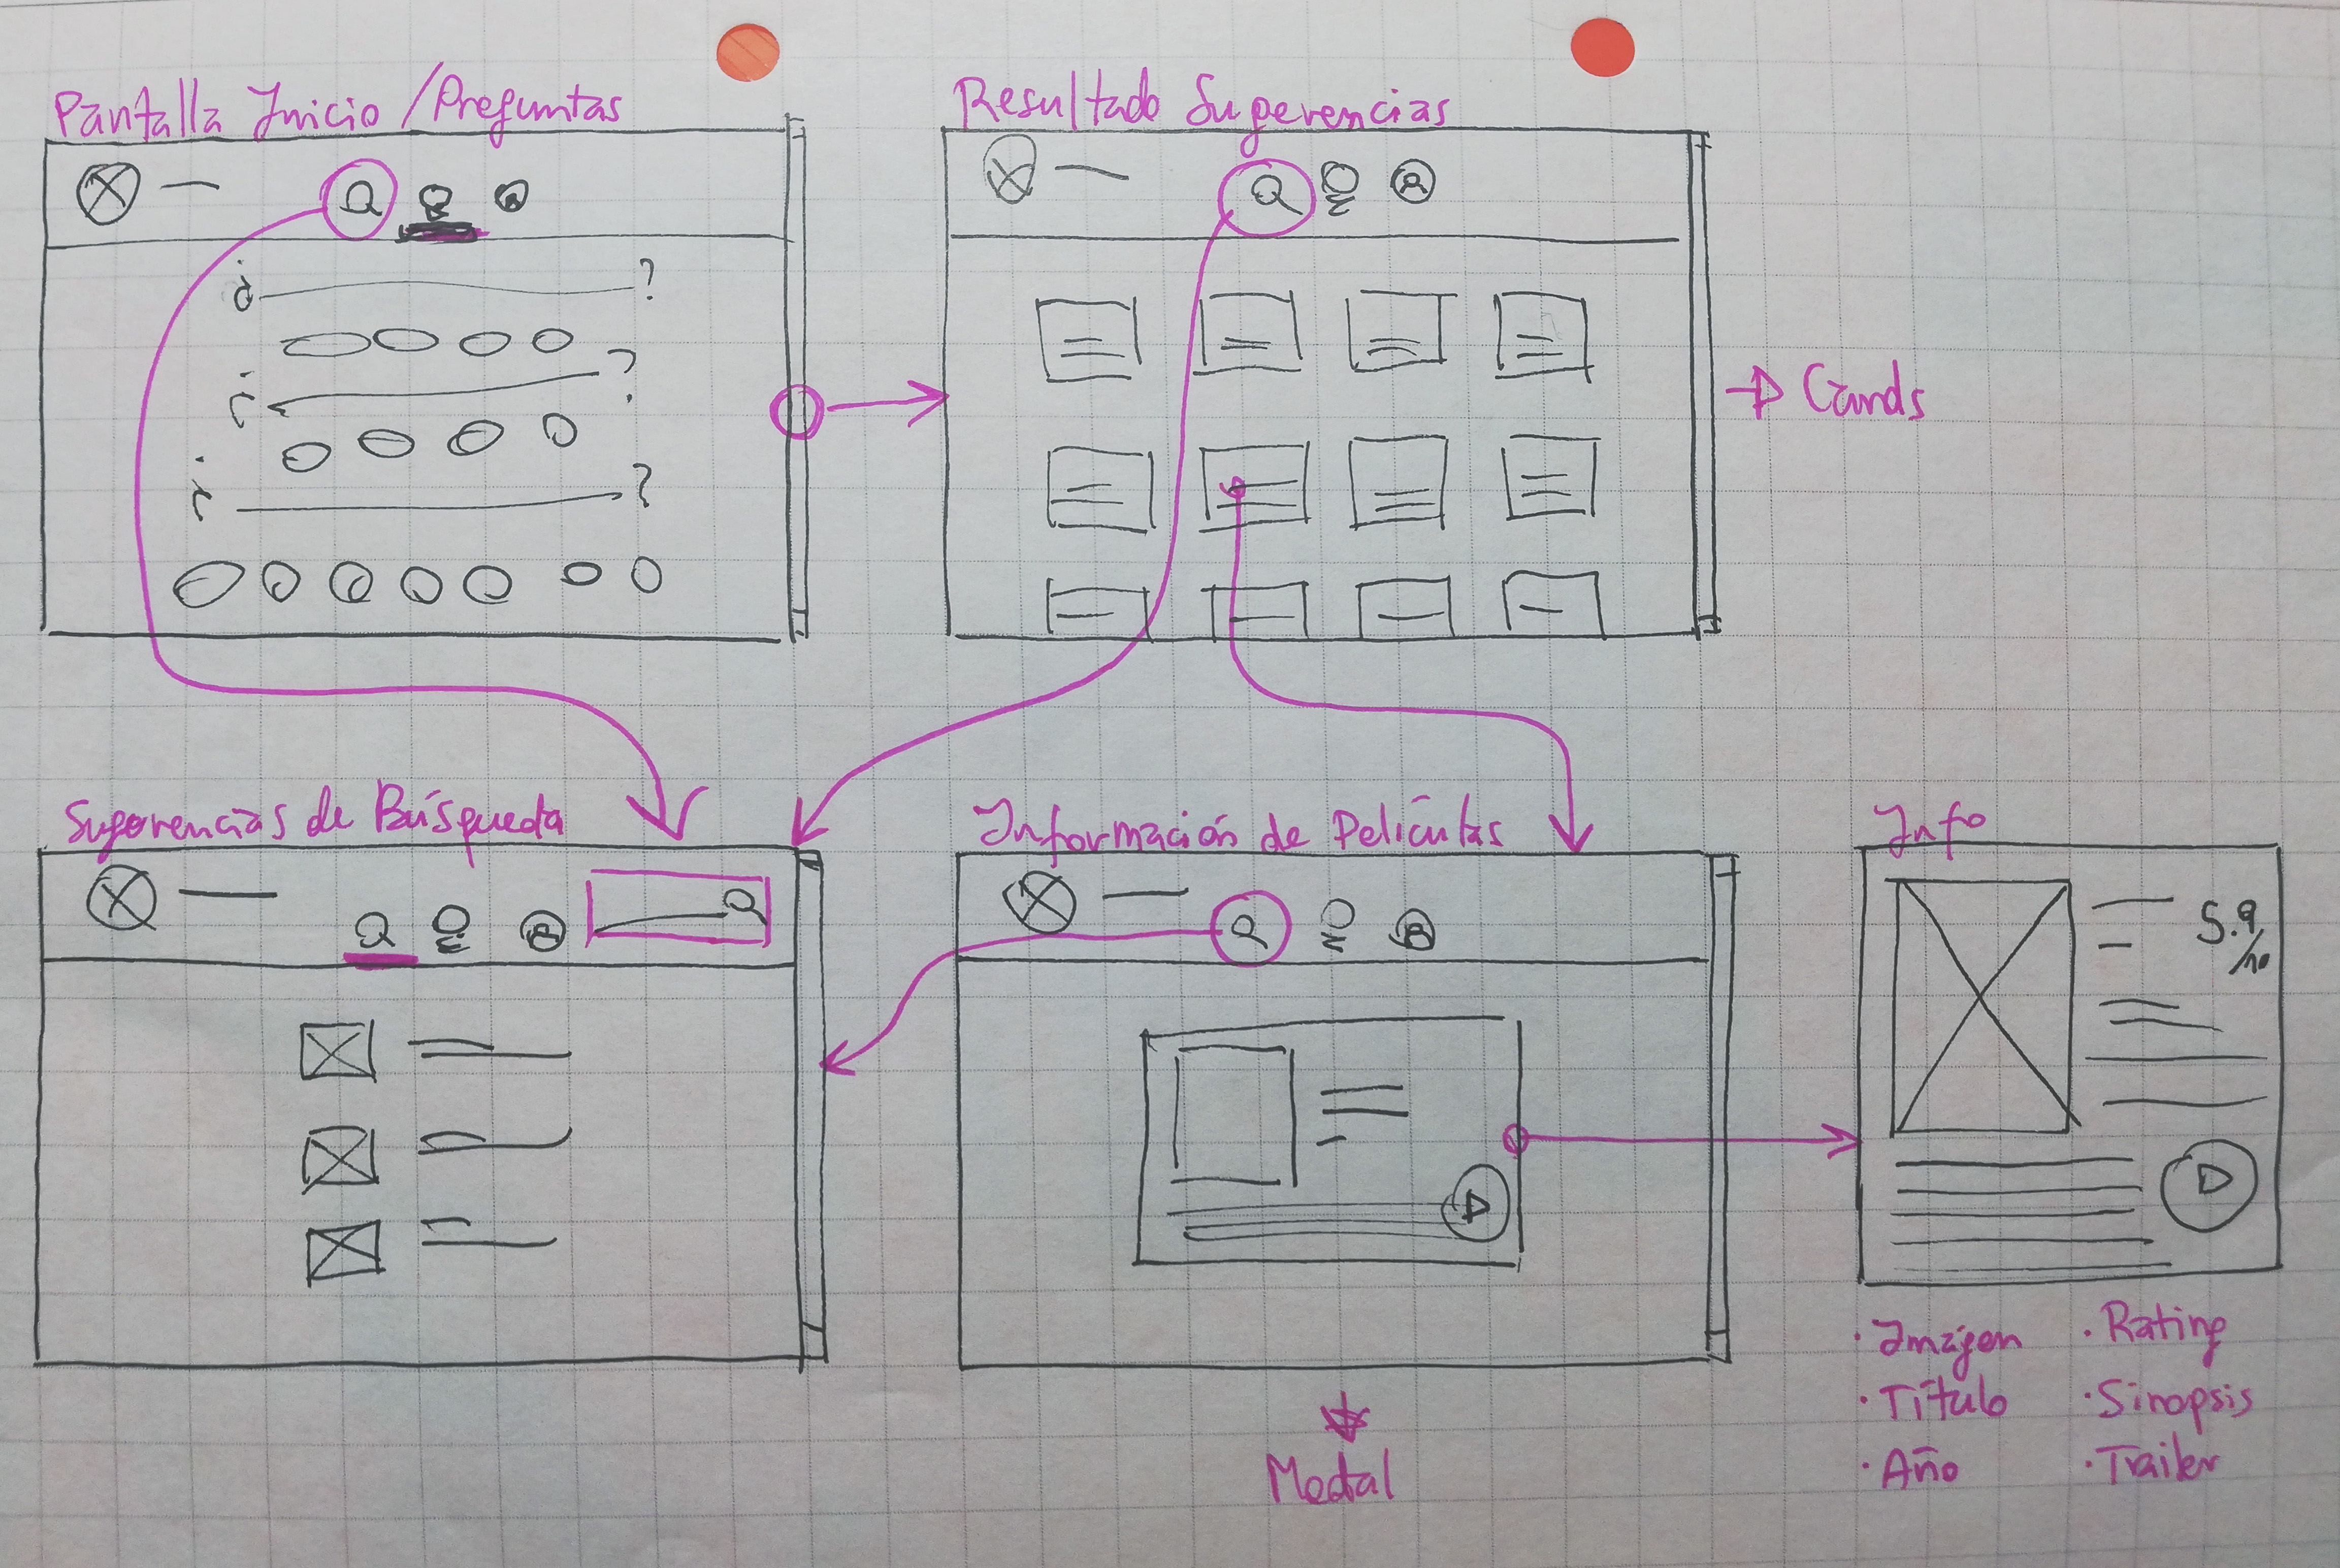 Pantalla Inicio / Preguntas
Resultado Sugerencias
¿ ?
¿ ?
¿ ?
Cards
Sugerencias de Búsqueda
Información de Películas
Info
5.9
/10
Modal
· Imágen
· Título
· Año
· Rating
· Sinopsis
· Trailer